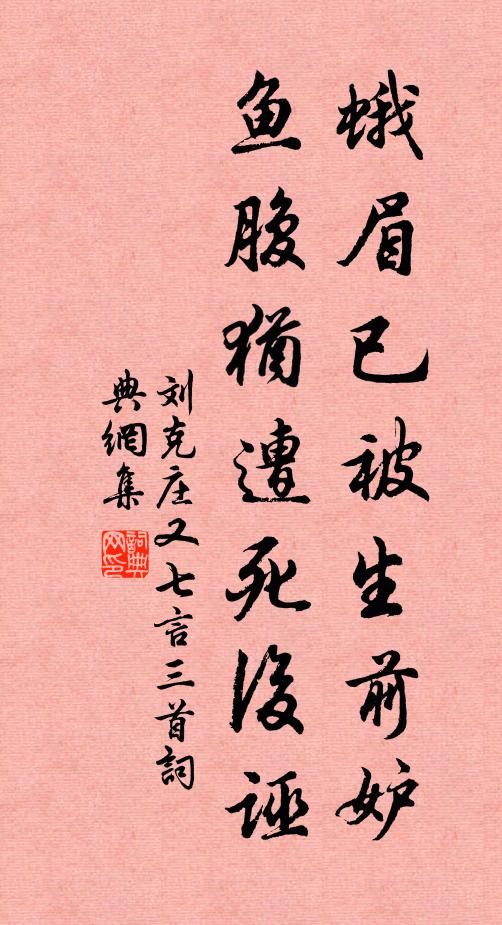 蛾眉已被生前妒
鱼腹犹遭死後诬
刘克庄又七言三首詞
典網集
詞典
网印